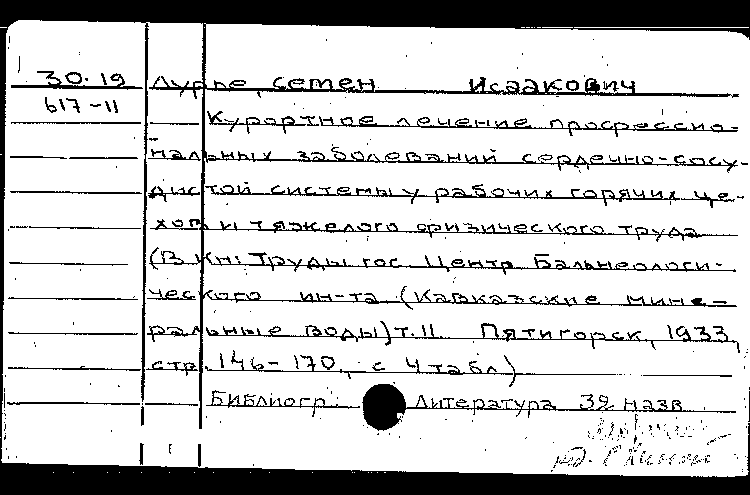 30.19 Лурье, Семен Исаакович
617-11 Курортное лечение профессио-
нальных заболеваний сердечно-сосу-
дистой системы у рабочих горячих це-
хов и тяжелого физического труда
(В кн: Труды гос Центр Бальнеологи-
ческого ин-та (Кавказские мине-
ральные воды) т. II Пятигорск, 1933,
стр. 146-170, с 4 табл)
Библиогр: Литература 39 назв